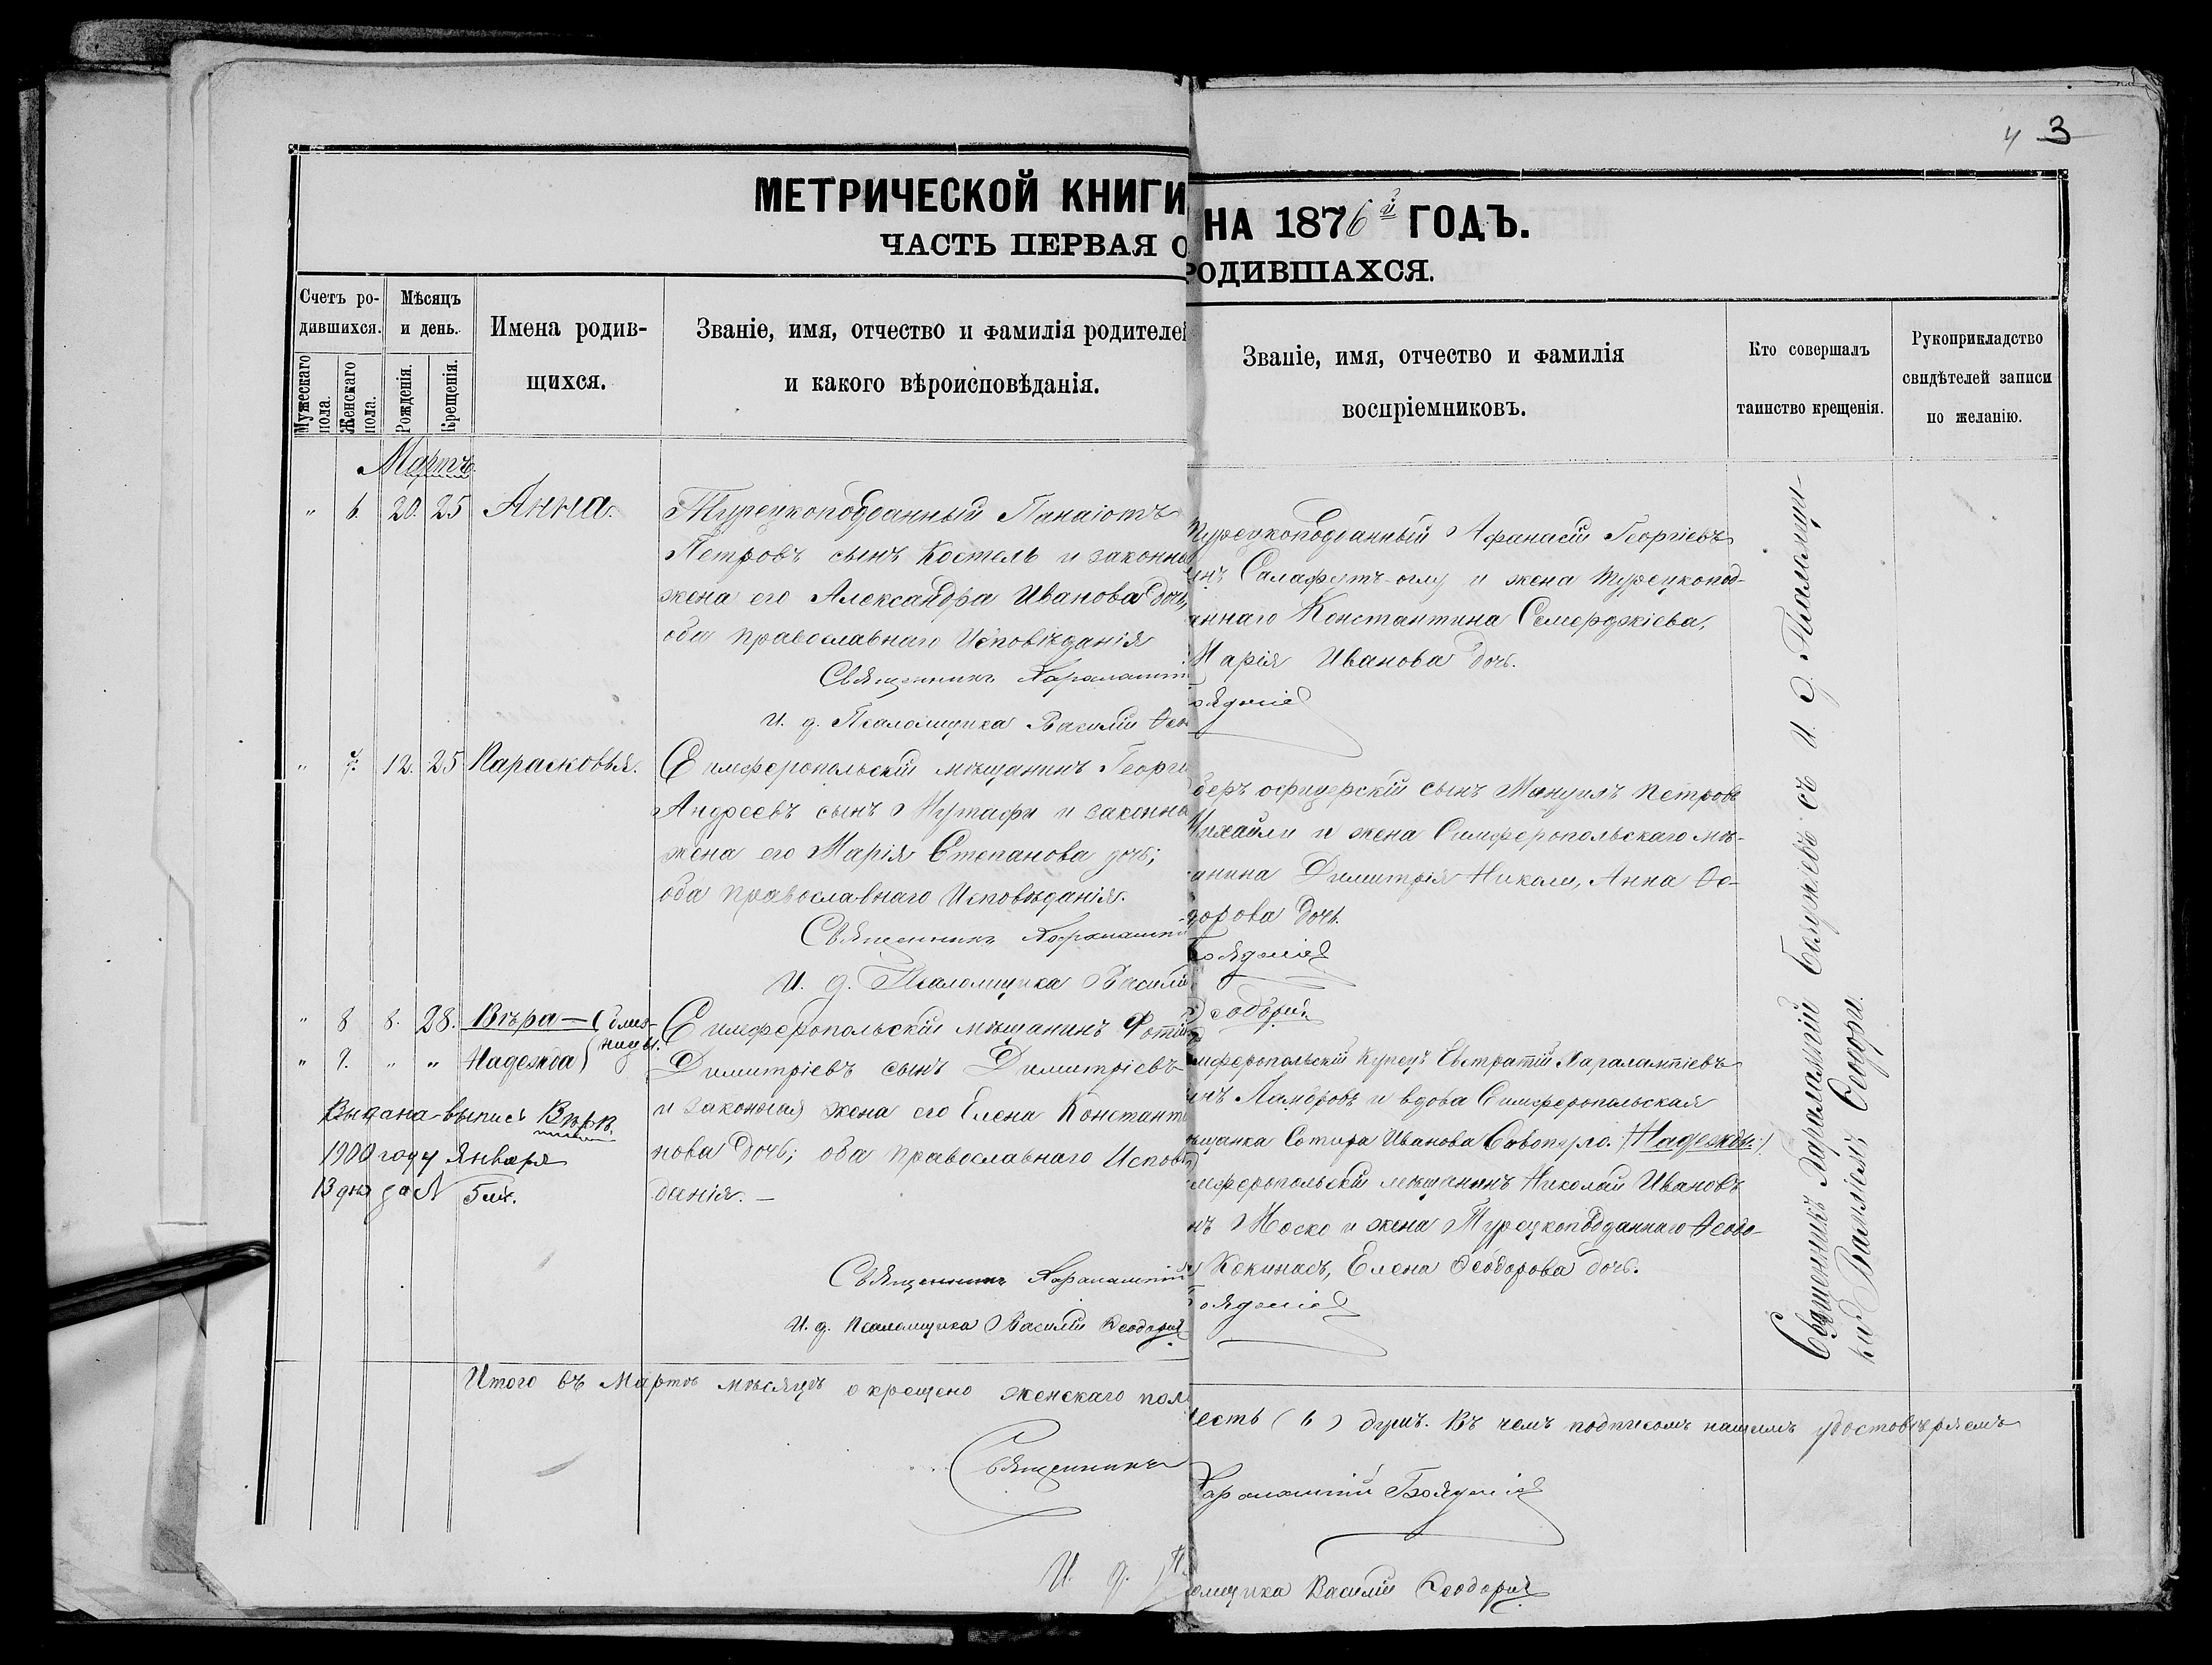 4 3
МЕТРИЧЕСКОЙ КНИГИ НА 1876й ГОДЪ.
ЧАСТЬ ПЕРВАЯ О РОДИВШАХСЯ.
Счетъ ро-
дившихся.
Мужескаго пола.
Женскаго пола.
Мѣсяцъ
и день.
Рожденія.
Крещенія.
Имена родив-
щихся.
Званіе, имя, отчество и фамилія родителей
и какого вѣроисповѣданія.
Званіе, имя, отчество и фамилія
воспріемниковъ.
Кто совершалъ
таинство крещенія.
Рукоприкладство
свидѣтелей записи
по желанію.
Мартъ
" 6. 20. 25 Анна.
Турецкоподданный Панаіотъ
Петровъ сынъ Костель и законна
жена его Александра Иванова дочь,
оба православнаго Исповѣданія
Священникъ Харалампій
И. д. Псаломщика Василій Ѳео
турецкоподданный Афанасій Георгіевъ
инъ Салафетъ-оглу и жена турецкопод-
аннаго Константина Семерджіева,
Марія Иванова дочь.
" 7. 12. 25 Парасковья.
Симферопольскій мѣщанинъ Георгі
Андреевъ сынъ Мутафи и законна
жена его Марія Степанова дочь;
оба православнаго Исповѣданія.
Священникъ Харалампі
И. д. Псаломщика Василій
беръ офицерскій сынъ Мануилъ Петровъ
Михайли и жена Симферопольскаго мѣ-
анина Димитрія Николи, Анна Ѳе-
дорова дочь.
" 8 8. 28. Вѣра — (близ-
" 9. " " Надежда) ницы.
Выдана выпись Вѣрѣ
1900 году Января
13 дня за N 5мъ.
Симферопольскій мѣщанинъ Фотій
Димитріевъ сынъ Димитріевъ
и законная жена его Елена Констант
нова дочь; оба православнаго Исповѣ
данія. —
Священникъ Харалампій
И. д. Псаломщика Василій Ѳеодори
мферопольскій Купецъ Евстратій Харалампіевъ
инъ Ламбровъ и вдова Симферопольская
ѣщанка Сотира Иванова Савопуло. (Надежды:)
мферопольскій мѣщанинъ Николай Ивановъ
нъ Моско и жена Турецкоподданнаго Ѳеодо-
Кокинасъ, Елена Ѳеодорова дочь.
Священникъ Харалампій съ И. д. Псаломщи-
ка Василіемъ Ѳеодори.
Итого въ Мартѣ мѣсяцѣ окрещено женскаго пол
есть (6) душъ. Въ чемъ подписомъ нашимъ удостовѣряемъ
Священникъ Харалампій
И. д. П омщика Василій Ѳеодори